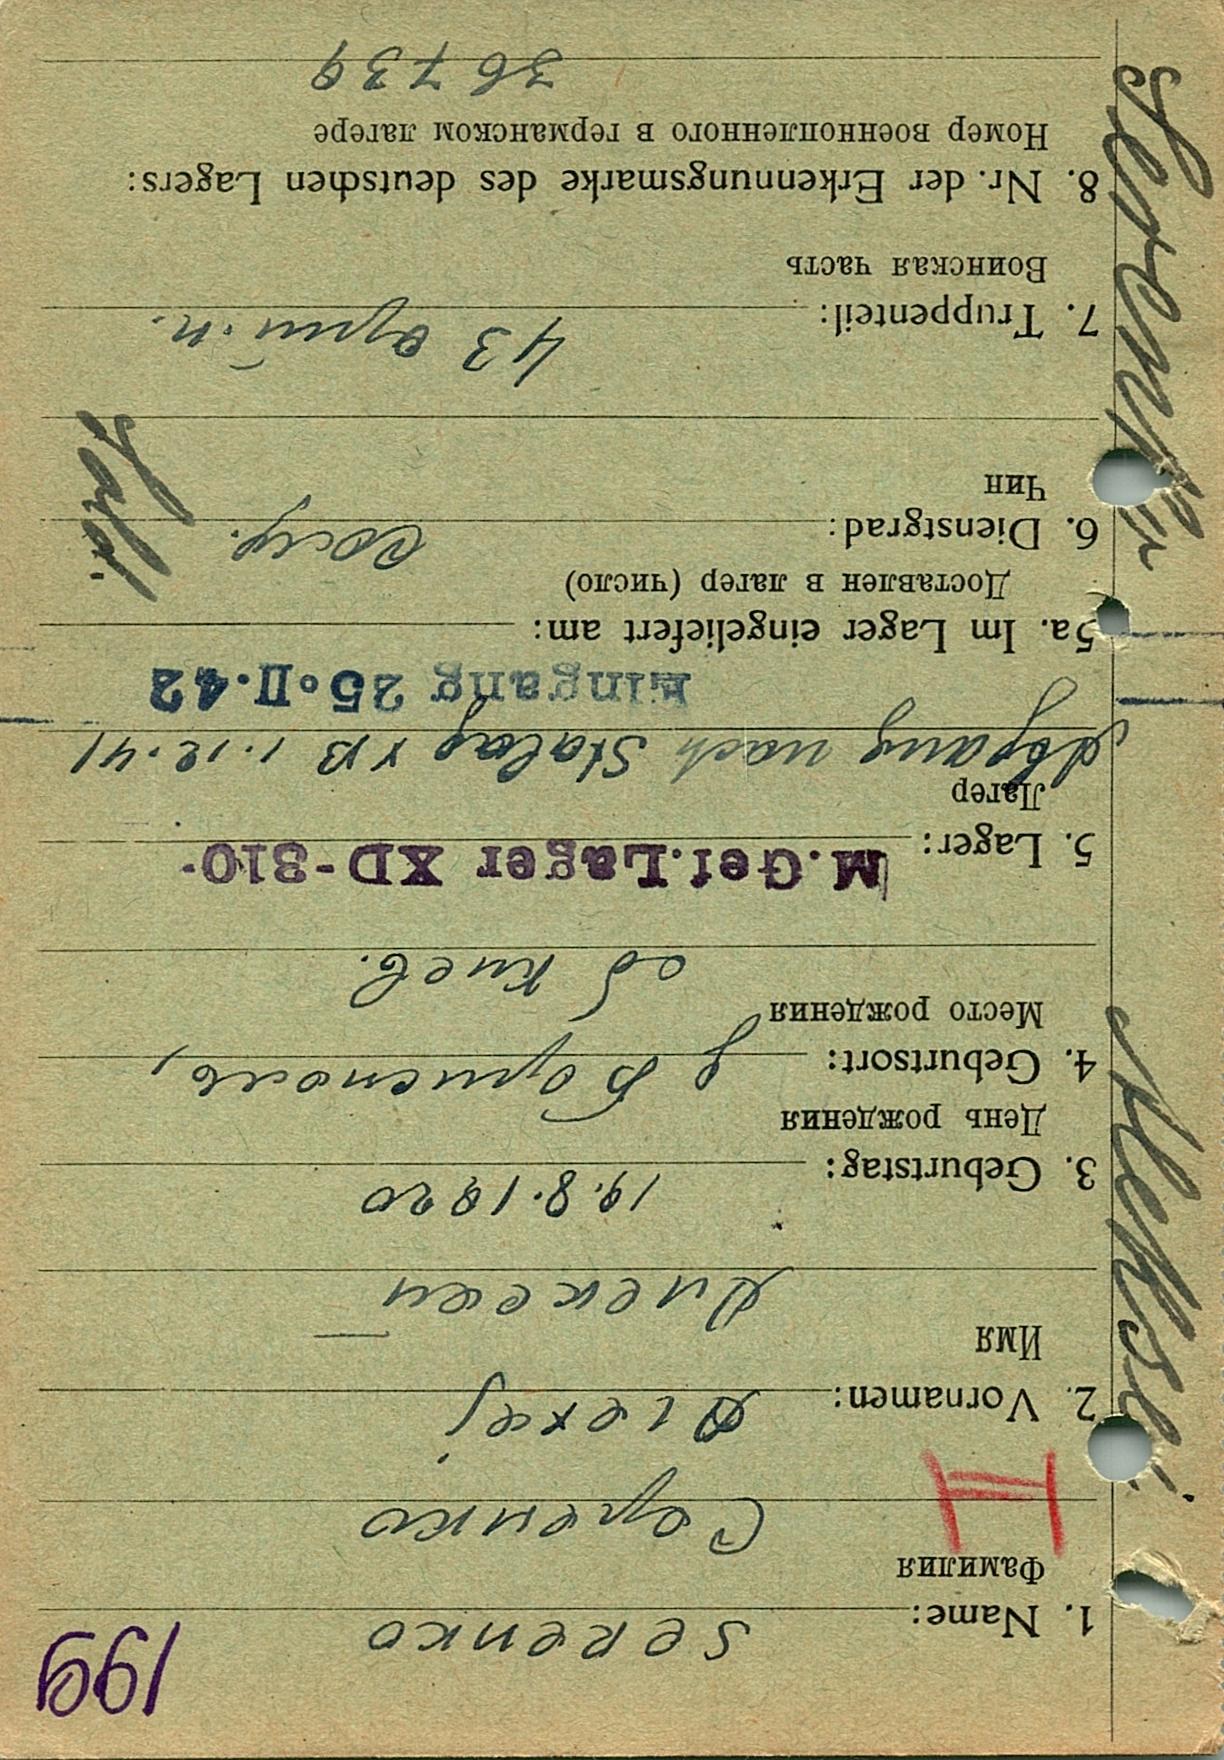 199
1. Name: Serenko
Фамилия
Серенко
2. Vornamen: Alexej
Имя
Алексей
3. Geburtstag: 19.8.1920
День рождения
4. Geburtsort: д Борисполь,
Место рождения
об Киев.
5. Lager: M.Gef.Lager XD-310.
Лагер
Abgang nach Stalag XB 1.12.41
Eingang 25.II.42
5a. Im Lager eingeliefert am:
Доставлен в лагер (число)
6. Dienstgrad: солд.
Чин
Sold.
7. Truppenteil: 43
Воинская часть
8. Nr. der Erkennungsmarke des deutschen Lagers:
Номер военнопленного в германском лагере
36739
Aleksei